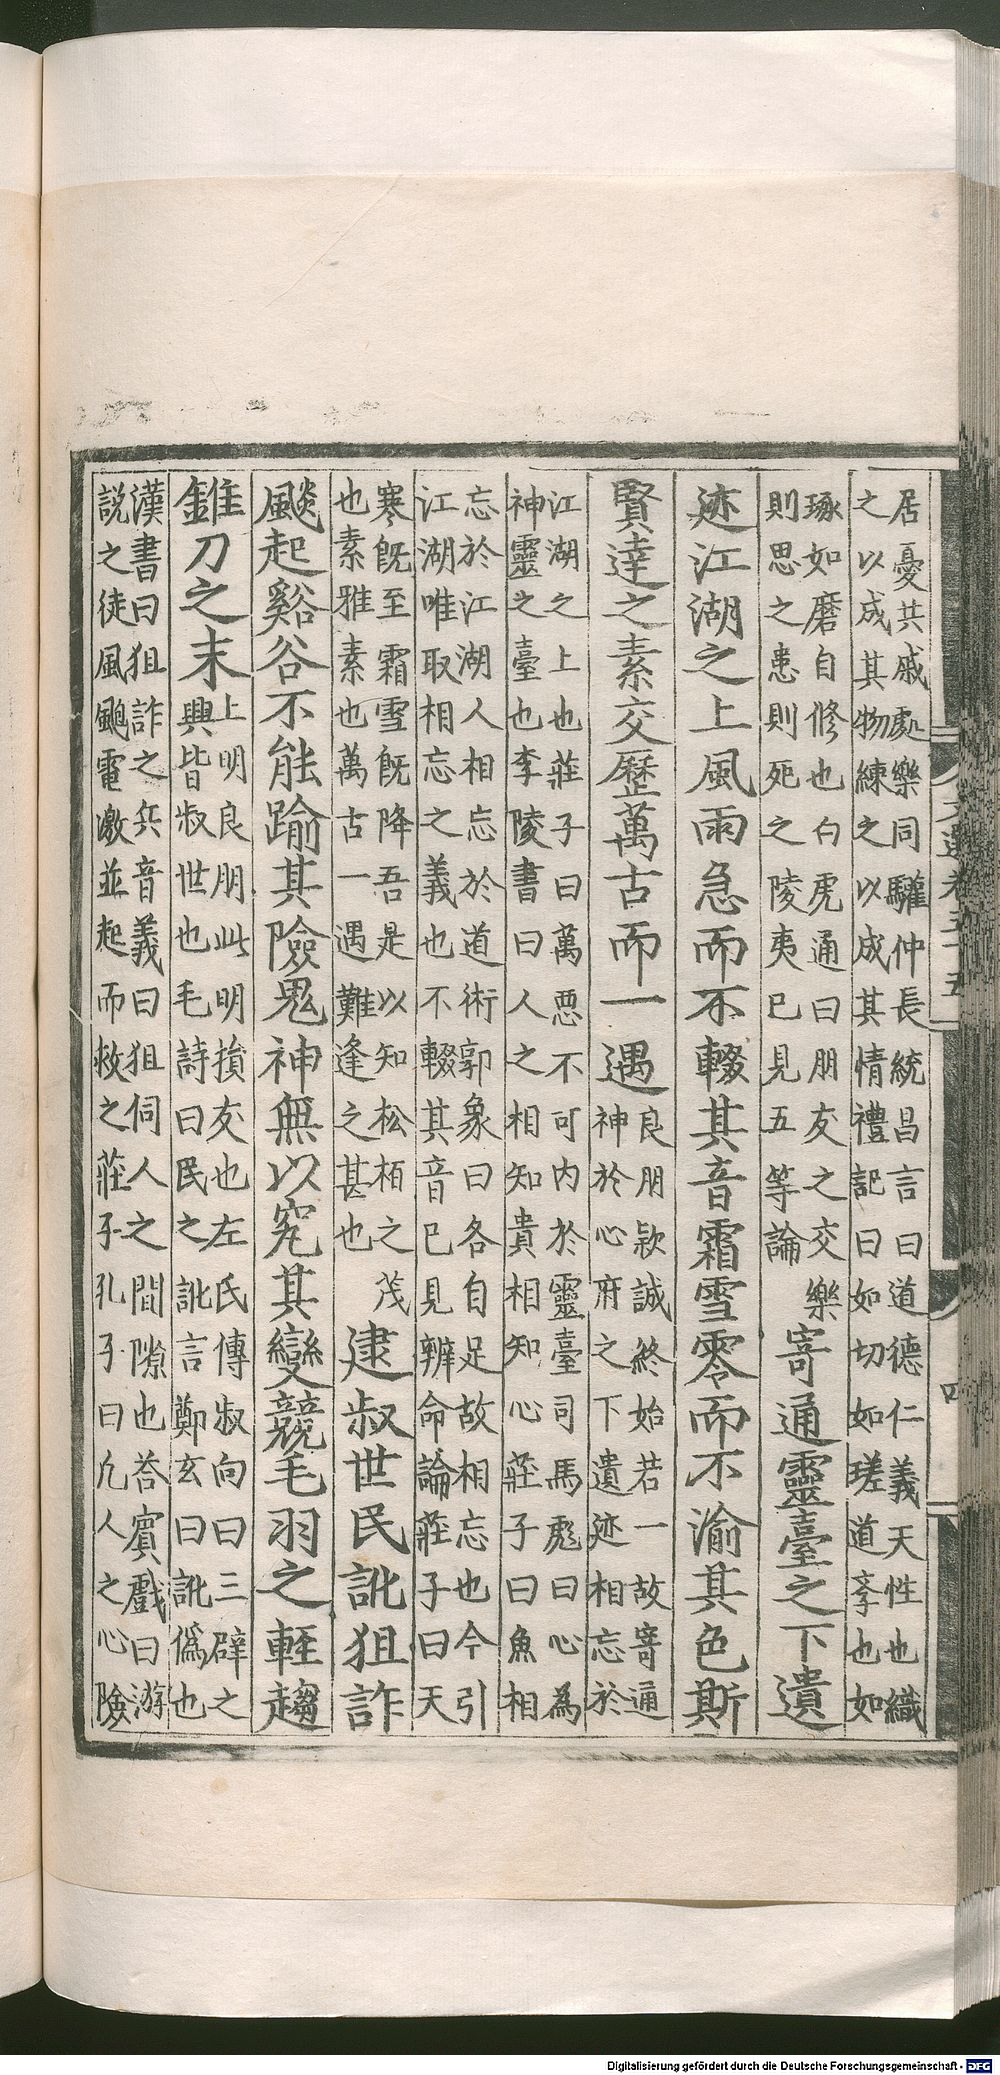 居憂共戚處樂同驩仲長統昌言曰道德仁義天性也織
之以成其物練之以成其情禮記曰如切如瑳道斈也如
琢如磨自修也白虎通曰朋友之交樂
則思之患則死之陵夷已見五等論
寄通靈臺之下遺
迹江湖之上風雨急而不輟其音霜雪零而不渝其色斯
賢達之素交歷萬古而一遇
良朋款誠終始若一故寄通
神於心府之下遺迹相忘於
江湖之上也莊子曰萬惡不可内於靈臺司馬彪曰心為
神靈之臺也李陵書曰人之相知貴相知心莊子曰魚相
忘於江湖人相忘於道術郭象曰各自足故相忘也今引
江湖唯取相忘之義也不輟其音已見辨命論莊子曰天
寒既至霜雪既降吾是以知松栢之茂
也素雅素也萬古一遇難逢之甚也
逮叔世民訛狙詐
飈起谿谷不能踰其險鬼神無以究其變競毛羽之輕趨
錐刀之末
上明良朋此明損友也左氏傳叔向曰三辟之
興皆叔世也毛詩曰民之訛言鄭玄曰訛偽也
漢書曰狙詐之兵音義曰狙伺人之間隙也荅賓戲曰游
説之徒風颮電激並起而救之莊子孔子曰凡人之心險
Digitalisierung gefördert durch die Deutsche Forschungsgemeinschaft - DFG